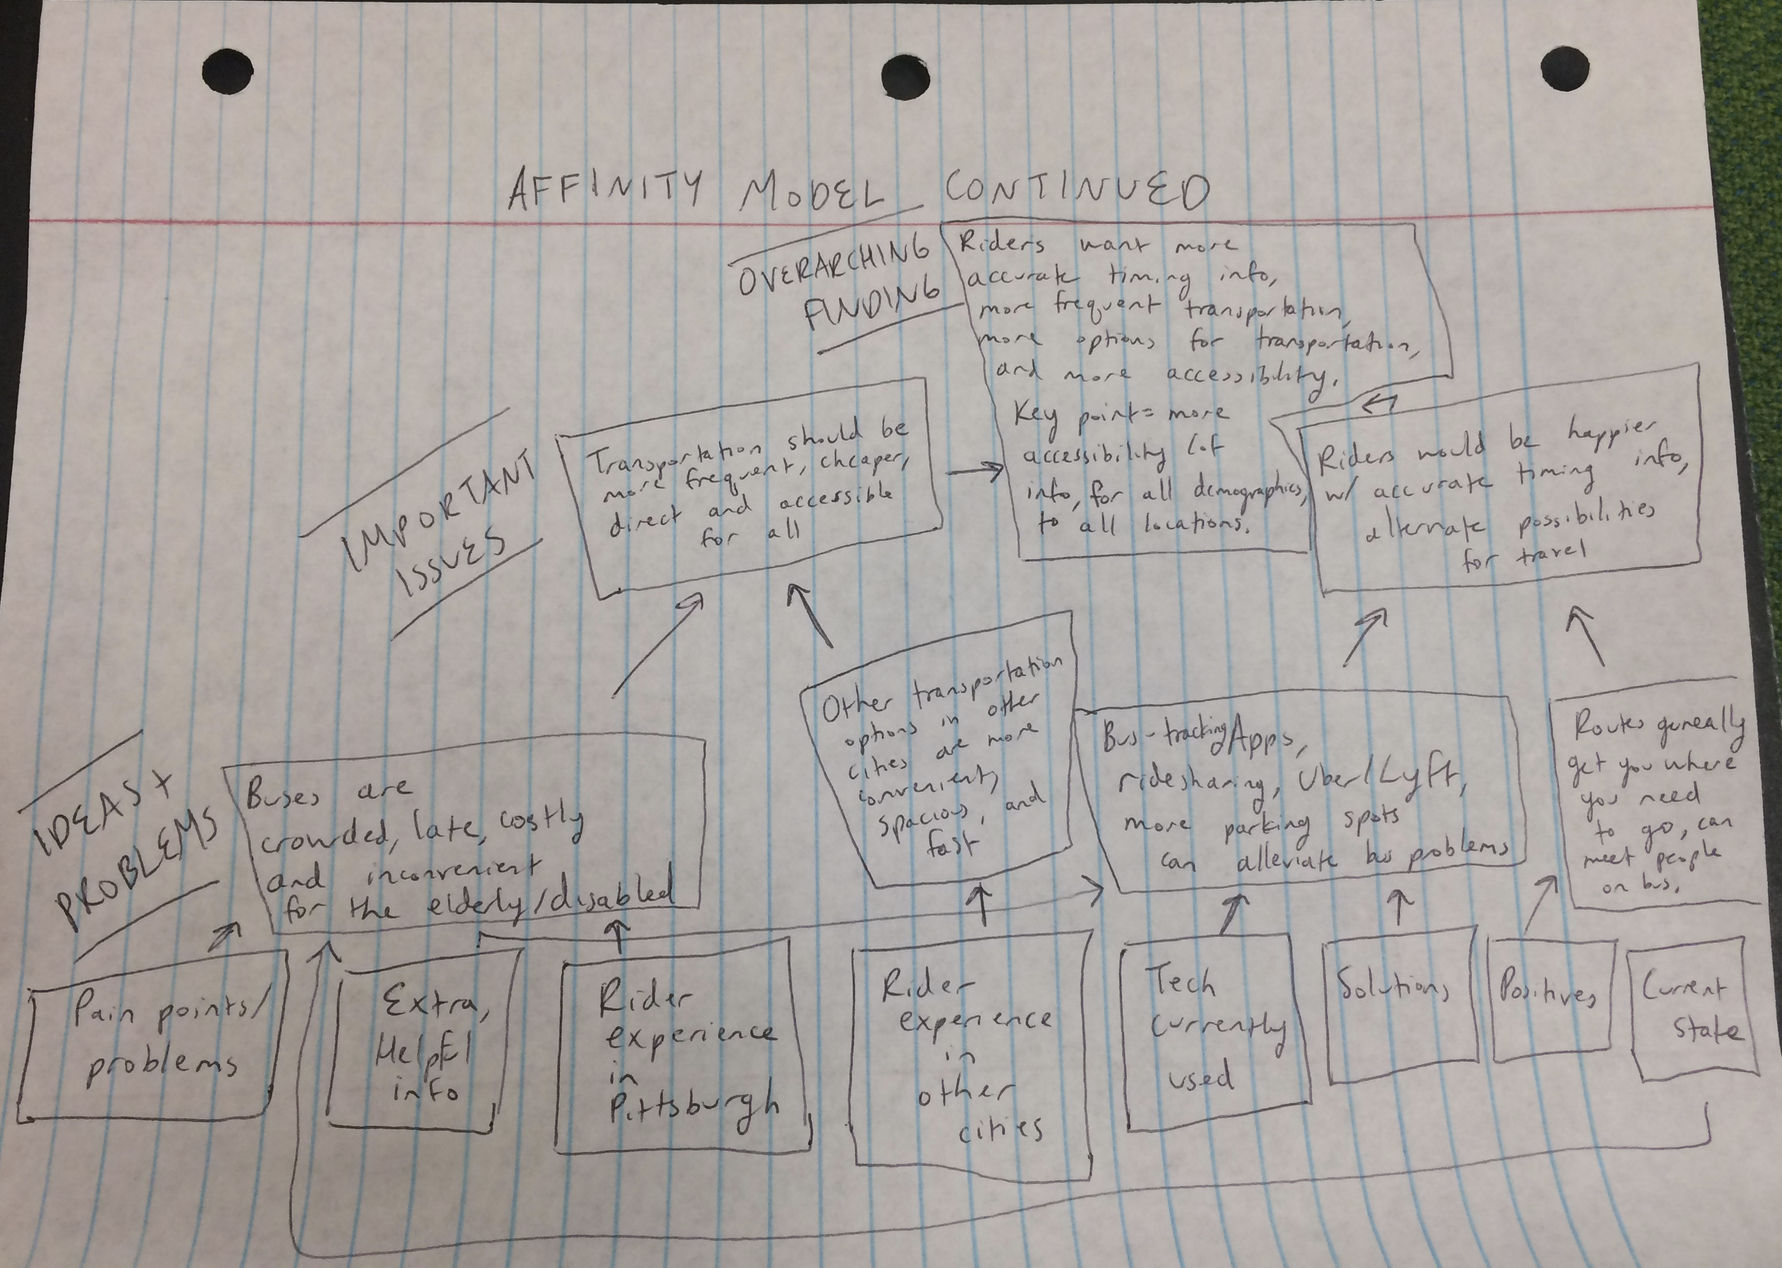 AFFINITY MODEL CONTINUED
OVERARCHING
FINDING
Riders want more
accurate timing info,
more frequent transportation,
more options for transportation,
and more accessibility.
Key point = more
accessibility (of
info, for all demographics,
to all locations.
IMPORTANT
ISSUES
Transportation should be
more frequent, cheaper,
direct and accessible
for all
Riders would be happier
w/ accurate timing info,
alternate possibilities
for travel
IDEAS +
PROBLEMS
Buses are
crowded, late, costly
and inconvenient
for the elderly/disabled
Other transportation
options in other
cities are more
convenient,
spacious, and
fast
Bus-tracking Apps,
ridesharing, Uber/Lyft,
more parking spots
can alleviate bus problems
Routes geneally
get you where
you need
to go, can
meet people
on bus.
Pain points/
problems
Extra,
Helpful
info
Rider
experience
in
Pittsburgh
Rider
experience
in
other
cities
Tech
currently
used
Solutions
Positives
Current
state